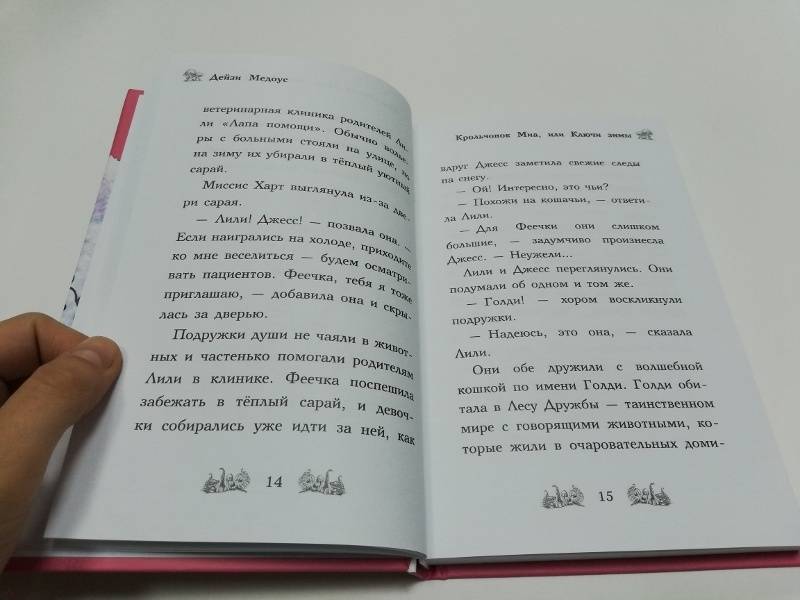 Дейзи Медоус
ветеринарная клиника родителей Ли-
ли «Лапа помощи». Обычно волье-
ры с больными стояли на улице, но
на зиму их убирали в тёплый уютный
сарай.
Миссис Харт выглянула из-за две-
ри сарая.
— Лили! Джесс! — позвала она. —
Если наигрались на холоде, приходите
ко мне веселиться — будем осматри-
вать пациентов. Феечка, тебя я тоже
приглашаю, — добавила она и скры-
лась за дверью.
Подружки души не чаяли в живот-
ных и частенько помогали родителям
Лили в клинике. Феечка поспешила
забежать в тёплый сарай, и девоч-
ки собирались уже идти за ней, как
14
Крольчонок Миа, или Ключи зимы
вдруг Джесс заметила свежие следы
на снегу.
— Ой! Интересно, это чьи?
— Похожи на кошачьи, — ответи-
ла Лили.
— Для Феечки они слишком
большие, — задумчиво произнесла
Джесс. — Неужели...
Лили и Джесс переглянулись. Они
подумали об одном и том же.
— Голди! — хором воскликнули
подружки.
— Надеюсь, это она, — сказала
Лили.
Они обе дружили с волшебной
кошкой по имени Голди. Голди оби-
тала в Лесу Дружбы — таинственном
мире с говорящими животными, ко-
торые жили в очаровательных доми-
15